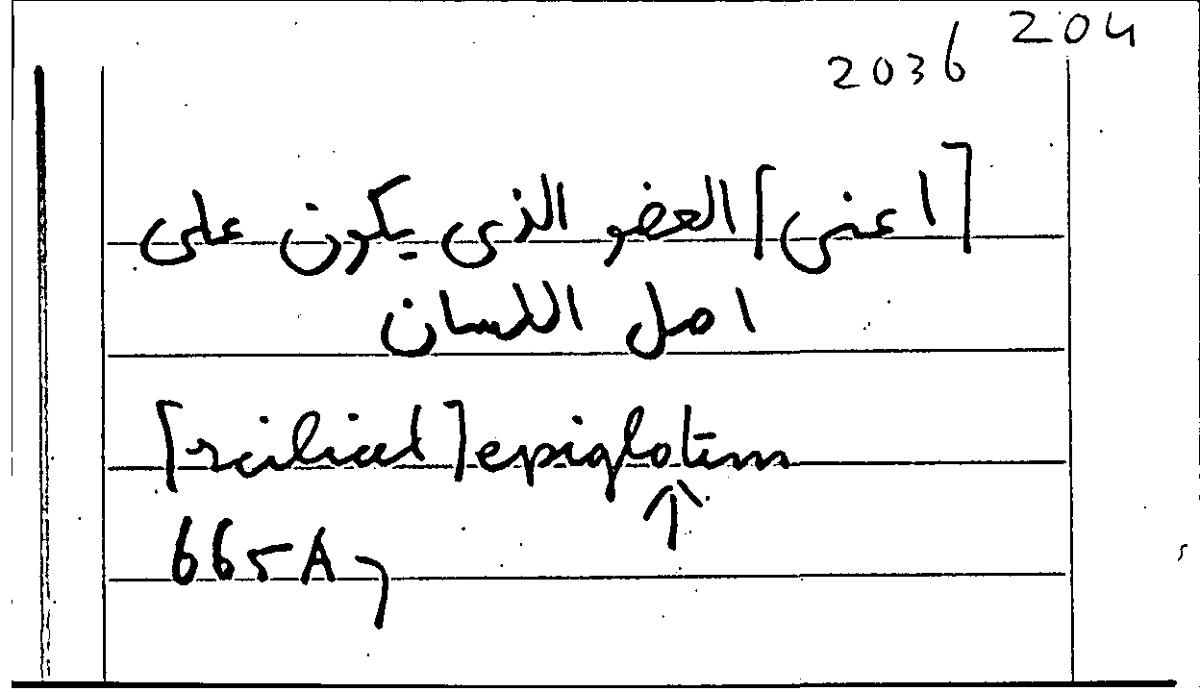 204
2036
[اعنى] العضو الذى يكون على
اصل اللسان
[scilicet] epiglotim
665A7